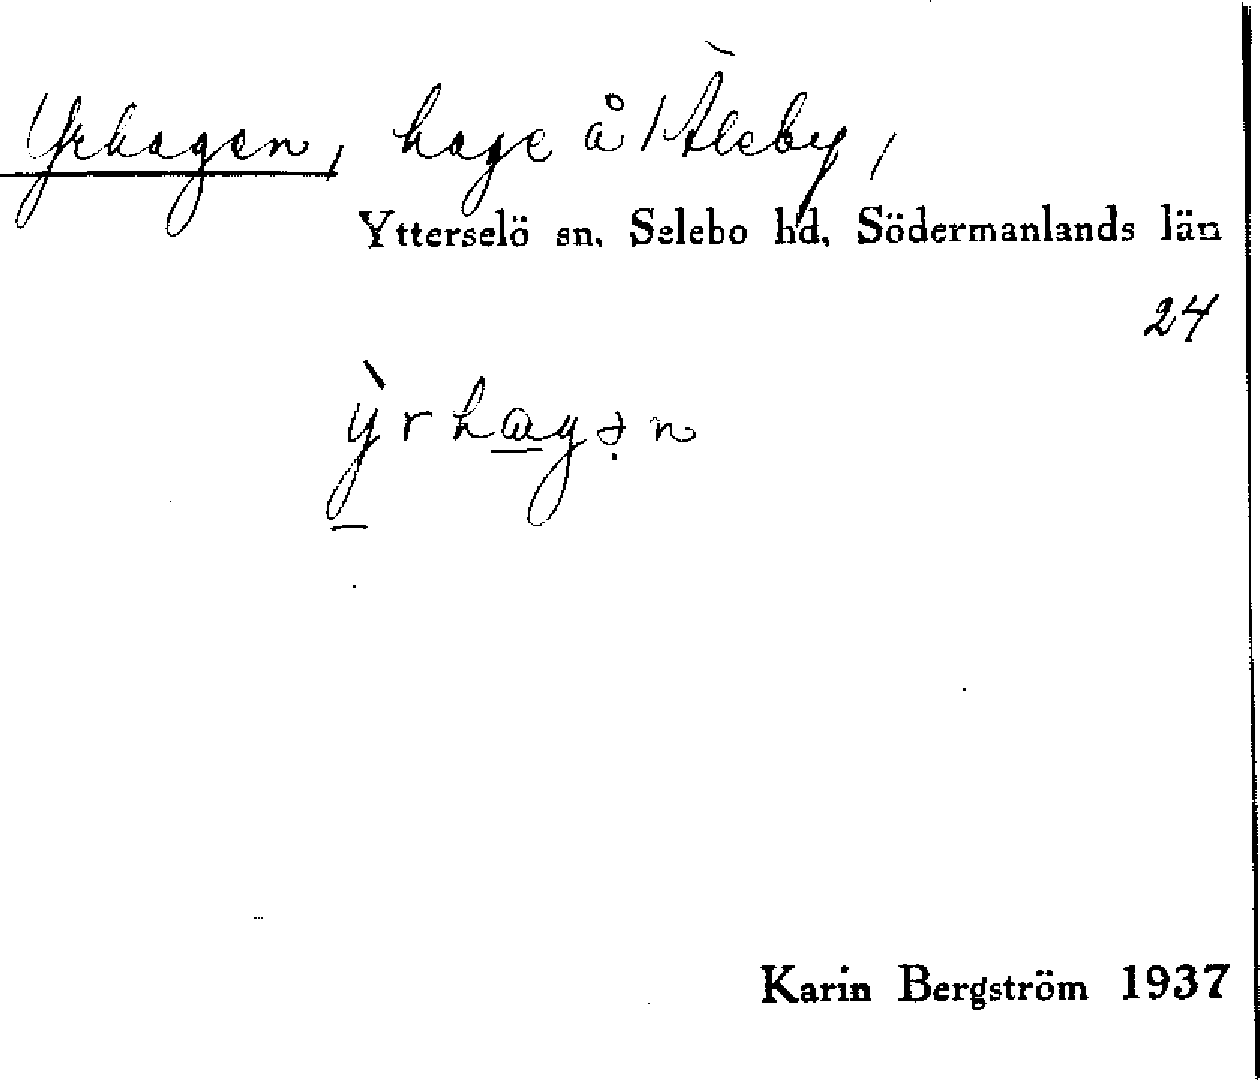 Yrhagen, hage å Åleby,
Ytterselö sn. Selebo hd. Södermanlands län
24
ỳrhagə̣n
Karin Bergström 1937